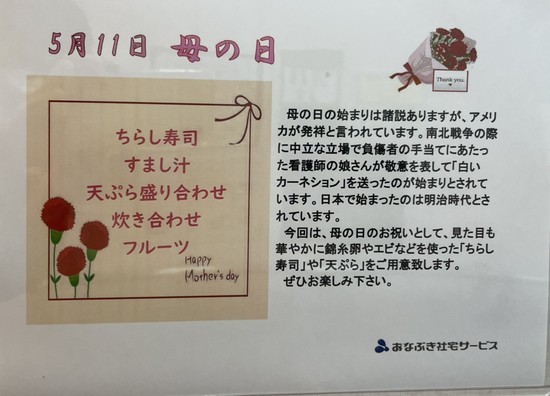 5月11日 母の日
Thank you.
ちらし寿司
すまし汁
天ぷら盛り合わせ
炊き合わせ
フルーツ
Happy
Mother's day
母の日の始まりは諸説ありますが、アメリ
カが発祥と言われています。南北戦争の際
に中立な立場で負傷者の手当てにあたっ
た看護師の娘さんが敬意を表して「白い
カーネション」を送ったのが始まりとされて
います。日本で始まったのは明治時代とさ
れています。
今回は、母の日のお祝いとして、見た目も
華やかに錦糸卵やエビなどを使った「ちらし
寿司」や「天ぷら」をご用意致します。
ぜひお楽しみ下さい。
あなぶき社宅サービス